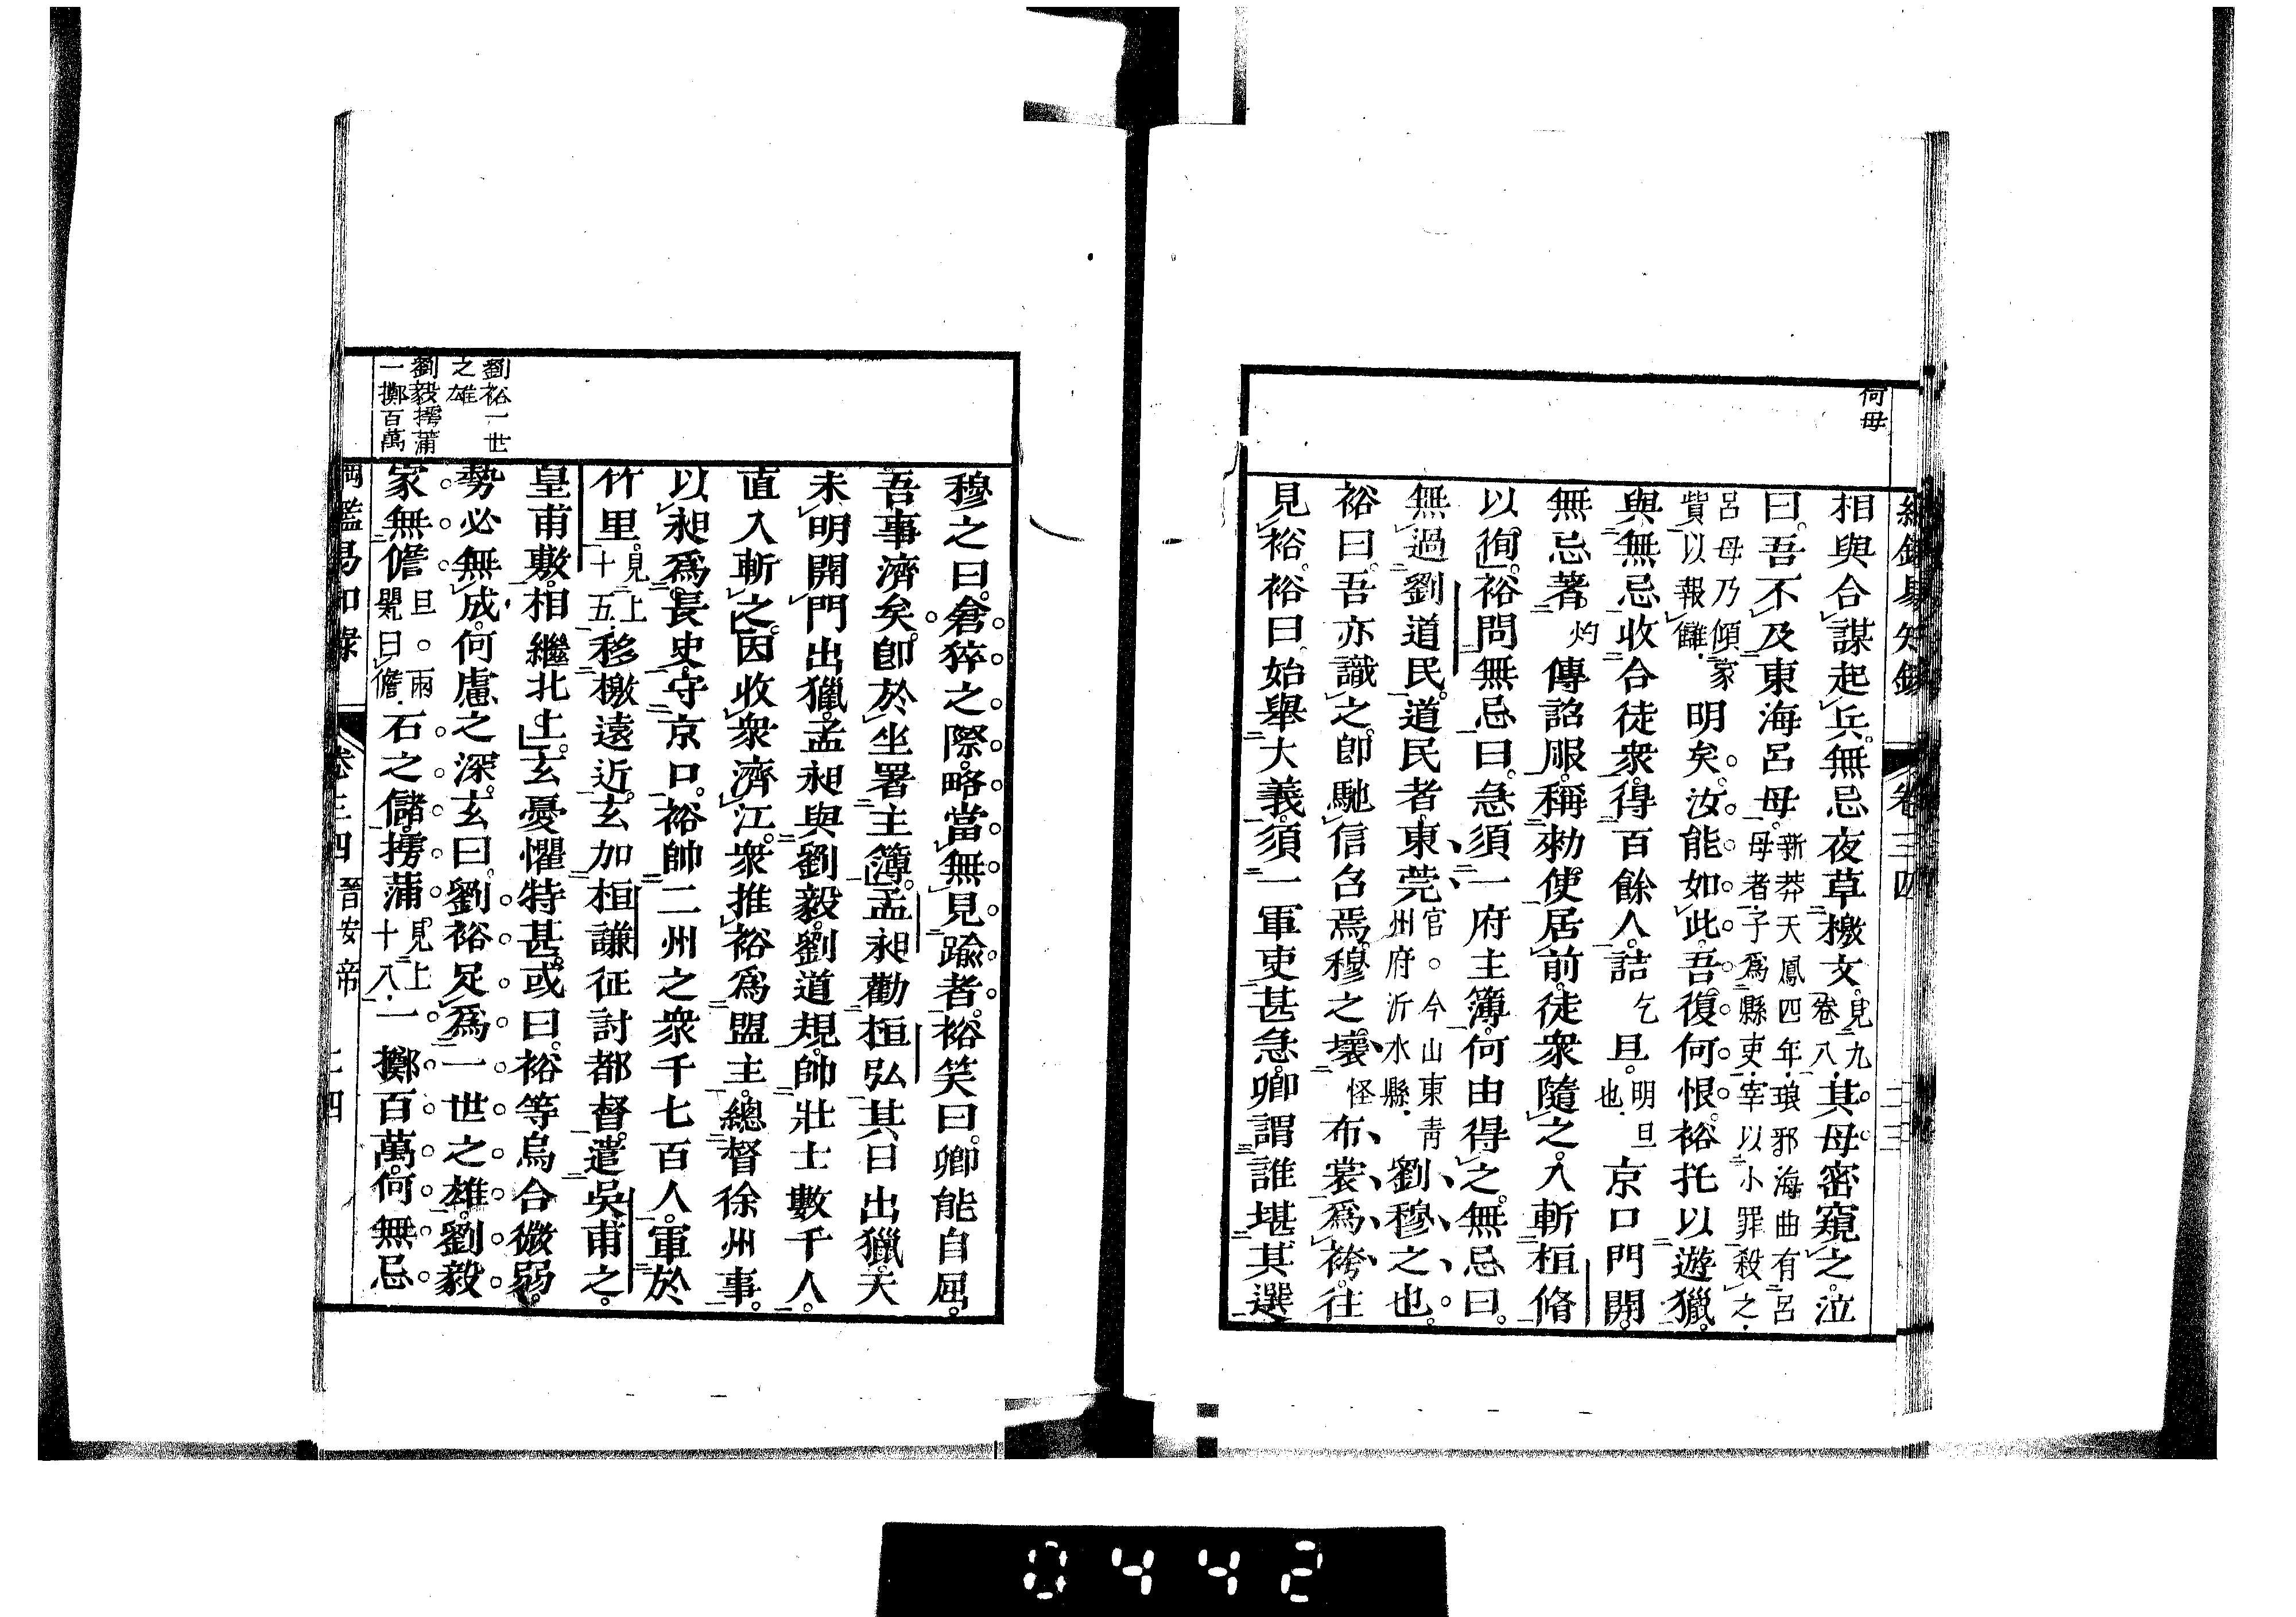 何母
相與合謀起兵。無忌夜草檄文。見九卷八。其母密窺之。泣
曰。吾不及東海呂母。新莽天鳳四年。琅邪海曲有呂母者。子爲縣吏。宰以小罪殺之。
呂母乃傾家貲以報讎。明矣。汝能如此。吾復何恨。裕托以遊獵。
與無忌收合徒衆。得百餘人。詰乞旦。明旦也。京口門開。
無忌著灼傳詔服。稱勅使。居前。徒衆隨之。入斬桓脩
以徇。裕問無忌曰。急須一府主簿。何由得之。無忌曰。
無過劉道民。道民者。東莞官。今山東靑州府沂水縣。劉穆之也。
裕曰。吾亦識之。卽馳信召焉。穆之壞怪布裳爲袴。往
見裕。裕曰。始舉大義。須一軍吏甚急。卿謂誰堪其選
卷三四
穆之曰。倉猝之際。略當無見踰者。裕笑曰。卿能自屈。
吾事濟矣。卽於坐署主簿。孟昶勸桓弘其日出獵。天
未明開門出獵。孟昶與劉毅劉道規。帥壯士數千人。
直入斬之。因收衆濟江。衆推裕爲盟主。總督徐州事。
以昶爲長史。守京口。裕帥二州之衆千七百人。軍於
竹里。見上十五。移檄遠近。玄加桓謙征討都督。遣吳甫之。
皇甫敷。相繼北上。玄憂懼特甚。或曰。裕等烏合微弱。
勢必無成。何慮之深。玄曰。劉裕足爲一世之雄。劉毅
家無儋旦。兩甖曰儋。石之儲。摴蒲見上十八。一擲百萬。何無忌
劉裕一世之雄
劉毅摴蒲一擲百萬
綱鑑易知錄 卷三四 晉安帝